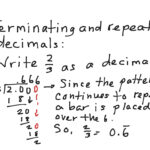 Terminating and repeat
decimals:
Write 2/3 as a decima
.666
3⟌2.000
18↓
20
18
20
18
2
→ Since the patter
continues to repe
a bar is placed
over the 6.
So, 2/3 = 0.6̅